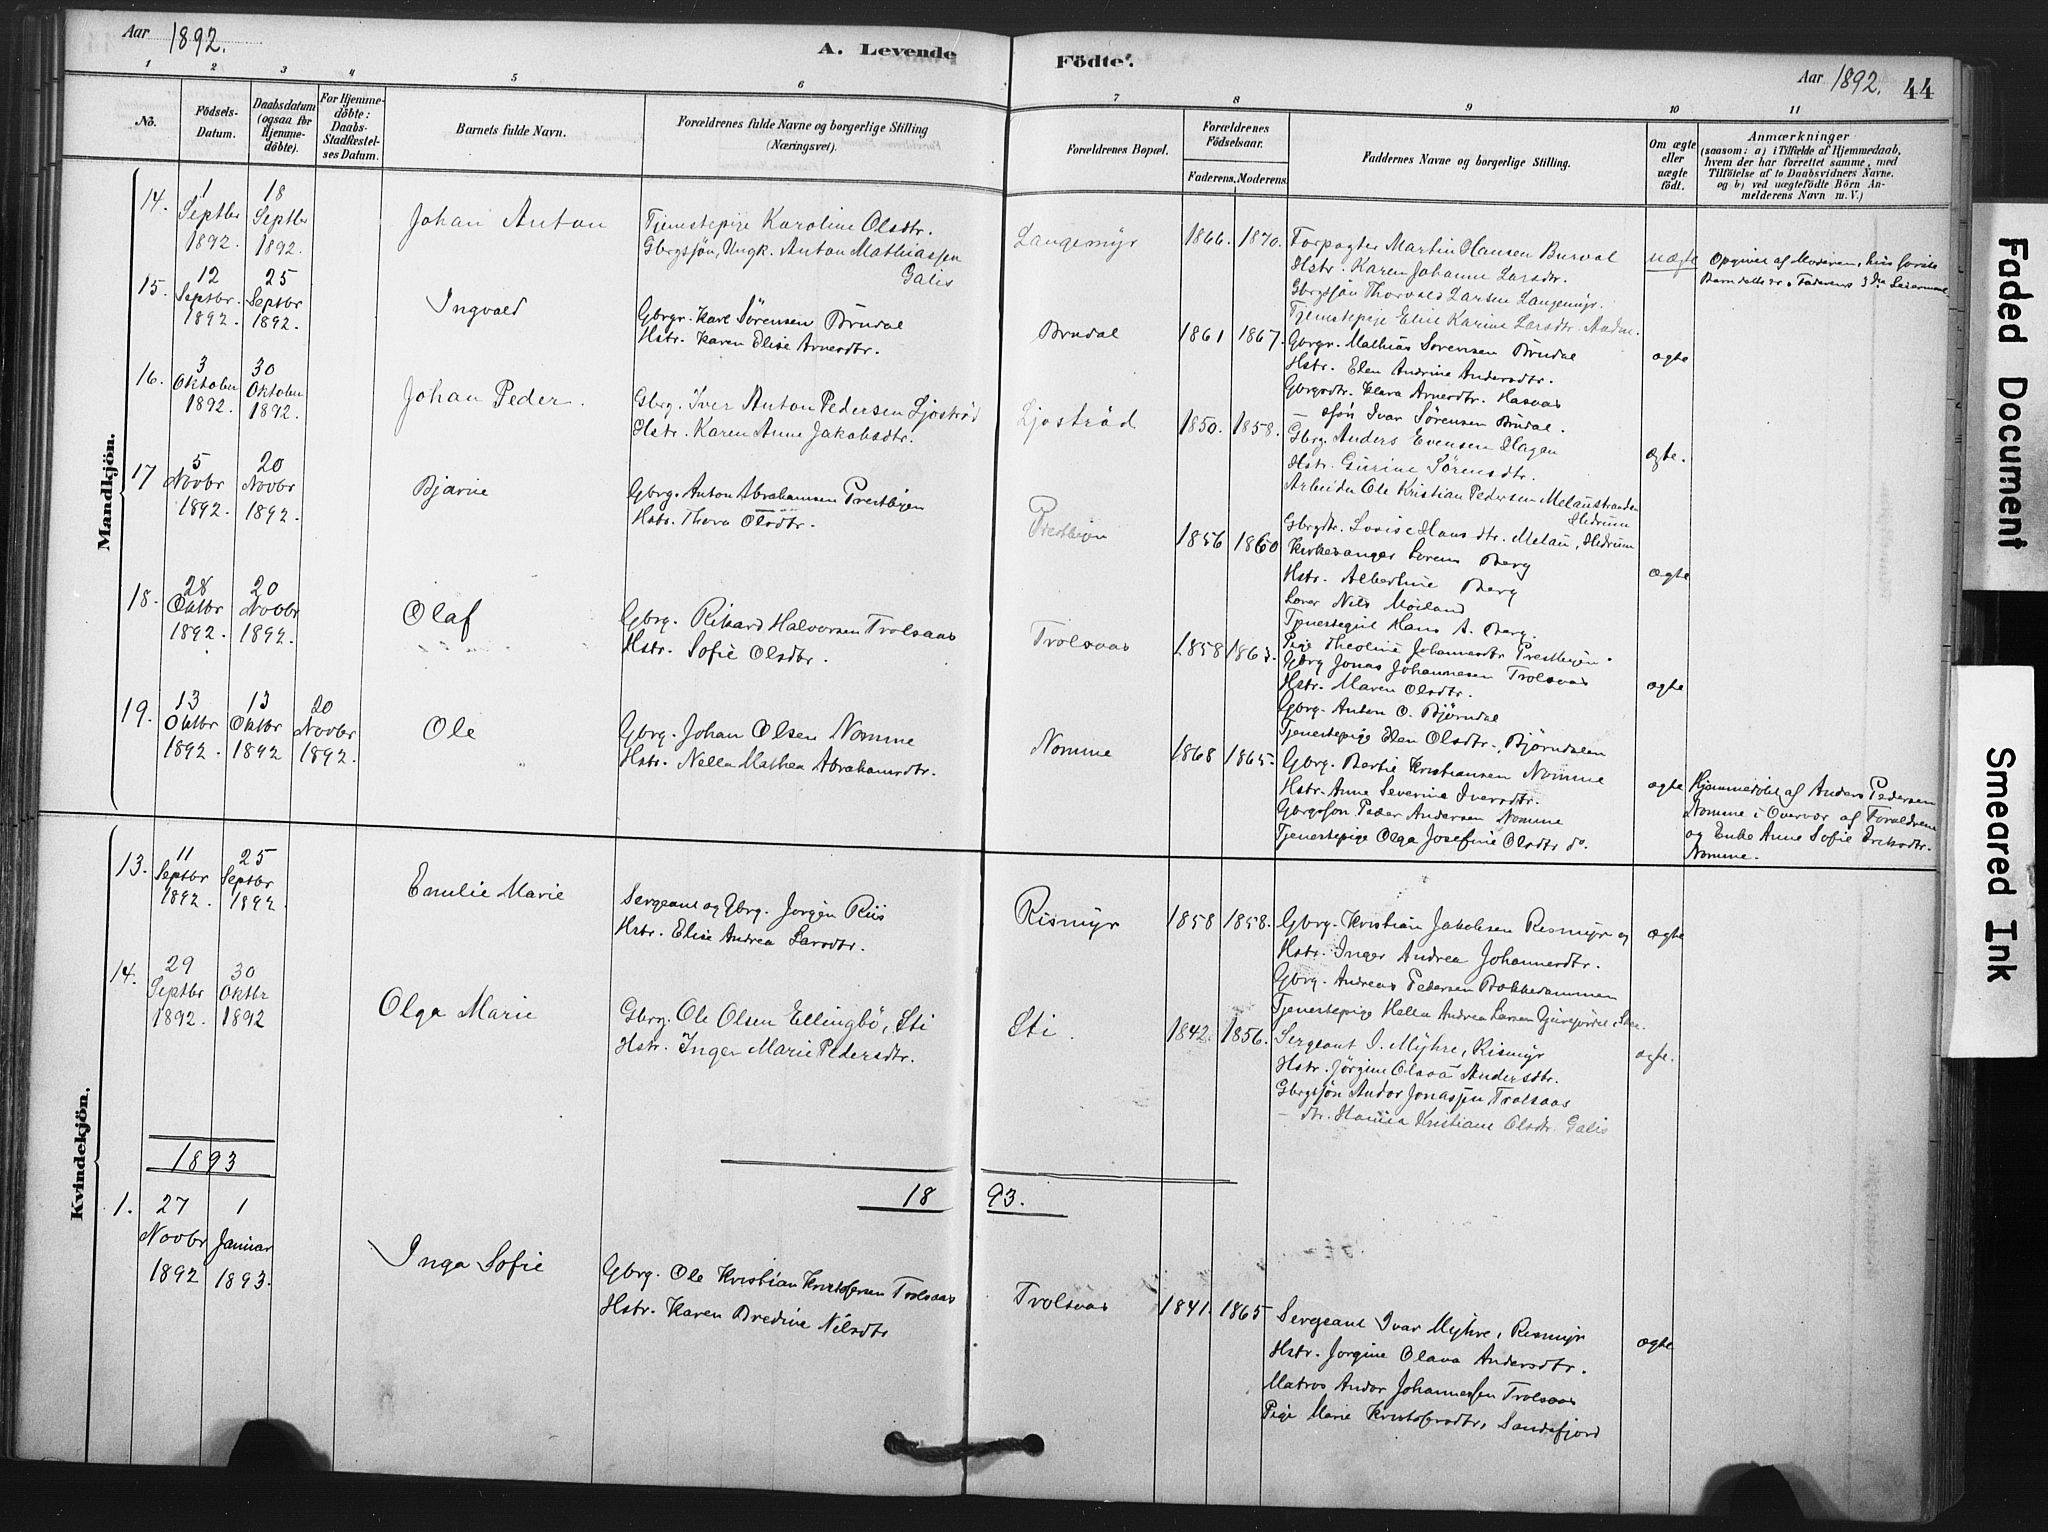 Aar 1892.
A. Levende Födte.
Aar 1892. 44
1 2 3 4 5 6 7 8 9 10 11
No.
Födsels-
Datum.
Daabsdatum
(ogsaa før
Hjemme-
döbte).
For Hjemme-
döbte:
Daabs-
Stadfæstel-
ses Datum.
Barnets fulde Navn.
Forældrenes fulde Navne og borgerlige Stilling
(Næringsvei).
Forældrenes Bopæl.
Forældrenes
Födselsaar.
Faderens. Moderens.
Faddernes Navne og borgerlige Stilling.
Om ægte
eller
uægte
födt.
Anmærkninger
(saasom: a) i Tilfælde af Hjemmedaab,
hvem der har forrettet samme, med
Tilföielse af to Daabsvidners Navne.
og b) ved uægtefödte Börn An-
melderens Navn m. V.)
Mandkjön.
14. 1 Septbr 1892. 18 Septbr 1892.
Johan Anton
Tjenestepige Karoline Olsdtr.
Gbrgsjön, Ungk. Anton Mathiassen
Galis
Langemyr 1866. 1870.
Forpagter Martin Hansen Burval
Hstr. Karen Johanne Larsdtr.
Gbrgsjön Thorvald Larsen Langemyr.
Tjenestepige Elise Karine Larsdtr.
uægte
Opgivet af Moderen, hvis første
Barn dette er. Faderens 3die Leiermaal
15. 12 Septbr. 1892. 25 Septbr 1892.
Ingvald
Gbrgr. Karl Sørensen Brudal
Hstr. Karen Elise Arnesdtr.
Brudal 1861 1867.
Gbrgr. Mathias Sørensen Brudal
Hstr. Elen Andrine Andersdtr.
Gbrgsdtr. Klara Arnesdtr. Hasaas
— sjön Ivar Sørensen Brudal.
ægte
16. 3 Oktober 1892. 30 Oktober 1892.
Johan Peder.
Gbrg. Iver Anton Pedersen Ljoströd
Hstr. Karen Anne Jakobsdtr.
Ljoströd 1850. 1858.
Gbrg. Anders Evensen Hagen
Hstr. Gurine Sørensdtr.
Arbeider Ole Kristian Pedersen Melaustranden
Hedrum
Gbrgdtr. Lovise Hansdtr. Melau, Hedrum
ægte.
17 5 Novbr 1892. 20 Novbr 1892.
Bjarne
Gbrg. Anton Abrahamsen Prestbyen
Hstr. Thora Olsdtr.
Prestbyen 1856 1860
Kirkesanger Lorens Berg
Hstr. Albertine Berg
Lærer Nils Moiland
Hans A. Berg.
Pige Theoline Johannesdtr Prestbyen.
ægte
18. 28 Oktbr 1892. 20 Novbr 1892.
Olaf
Gbrg. Rikard Halvorsen Trolsaas
Hstr. Sofie Olsdtr.
Trolsaas 1858 1863.
Gbrg Jonas Johannesen Trolsaas
Hstr. Maren Olsdtr.
Gbrg. Anton O. Bjørndal
Tjenestepige Elen Olsdtr., Bjørndalen
ægte
19. 13 Oktbr 1892. 13 Oktbr 1892 20 Novbr 1892.
Ole
Gbrg. Johan Olsen Nomme
Hstr. Nella Mathea Abrahamsdtr.
Nomme 1868 1865.
Gbrg. Bertil Kristiansen Nomme
Hstr. Anne Severine Iversdtr.
Gbrgsson Peder Andersen Nomme
Tjenestepige Olga Josefine Olsdtr do.
ægte
Hjemmedøbt af Anders Pedersen
Nomme i Overvær af Forældrene
og Enke Anne Sofie Eriksdtr.
Nomme.
Kvindekjön.
13. 11 Septbr 1892. 25 Septbr 1892.
Emilie Marie
Sergeant og Gbrg. Jørgen Riis
Hstr. Elise Andrea Larsdtr.
Rismyr 1858 1858.
Gbrg. Kristian Jakobsen Rismyr og
Hstr. Inger Andrea Johannesdtr.
Gbrg. Andreas Pedersen Bakkedammen
Tjenestepige Hella Andrea Larsen
ægte
14. 29 Septbr 1892. 30 Oktbr 1892
Olga Marie
Gbrg. Ole Olsen Ellingbö, Sti
Hstr. Inger Marie Pedersdtr.
Sti. 1842. 1856.
Sergeant I. Myhre, Rismyr
Hstr. Jörgine Olava Andersdtr.
Gbrgsjön Andor Jonassen Trolsaas
— dtr. Hanna Kristiane Olsdtr. Galis
ægte.
1893
1893.
1. 27 Novbr 1892 1 Januar 1893.
Inga Sofie
Gbrg. Ole Kristian Kristofersen Trolsaas
Hstr. Karen Bredine Nilsdtr
Trolsaas 1841. 1865
Sergeant Ivar Myhre, Rismyr
Hstr. Jorgine Olava Andersdtr.
Matros Andor Johannessen Trolsaas
Pige Marie Kristofersdtr, Sandefjord
ægte
Faded Document
Smeared Ink